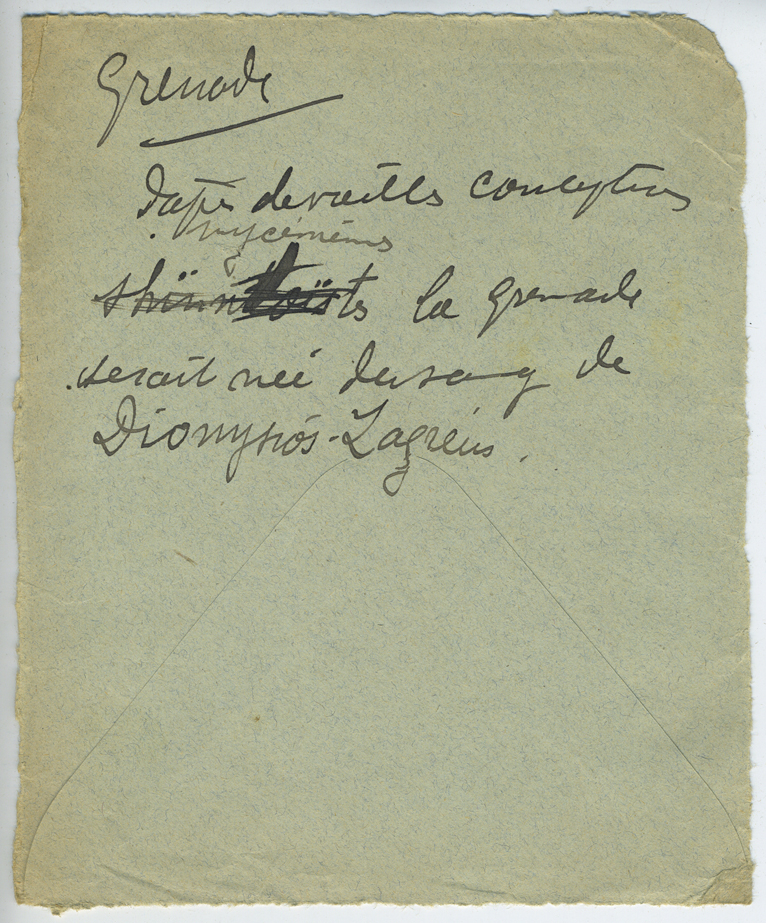 Grenade
d'après de vieilles conceptions
mycéniennes
shinntoïstes la grenade
serait née du sang de
Dionysos-Zagreus.